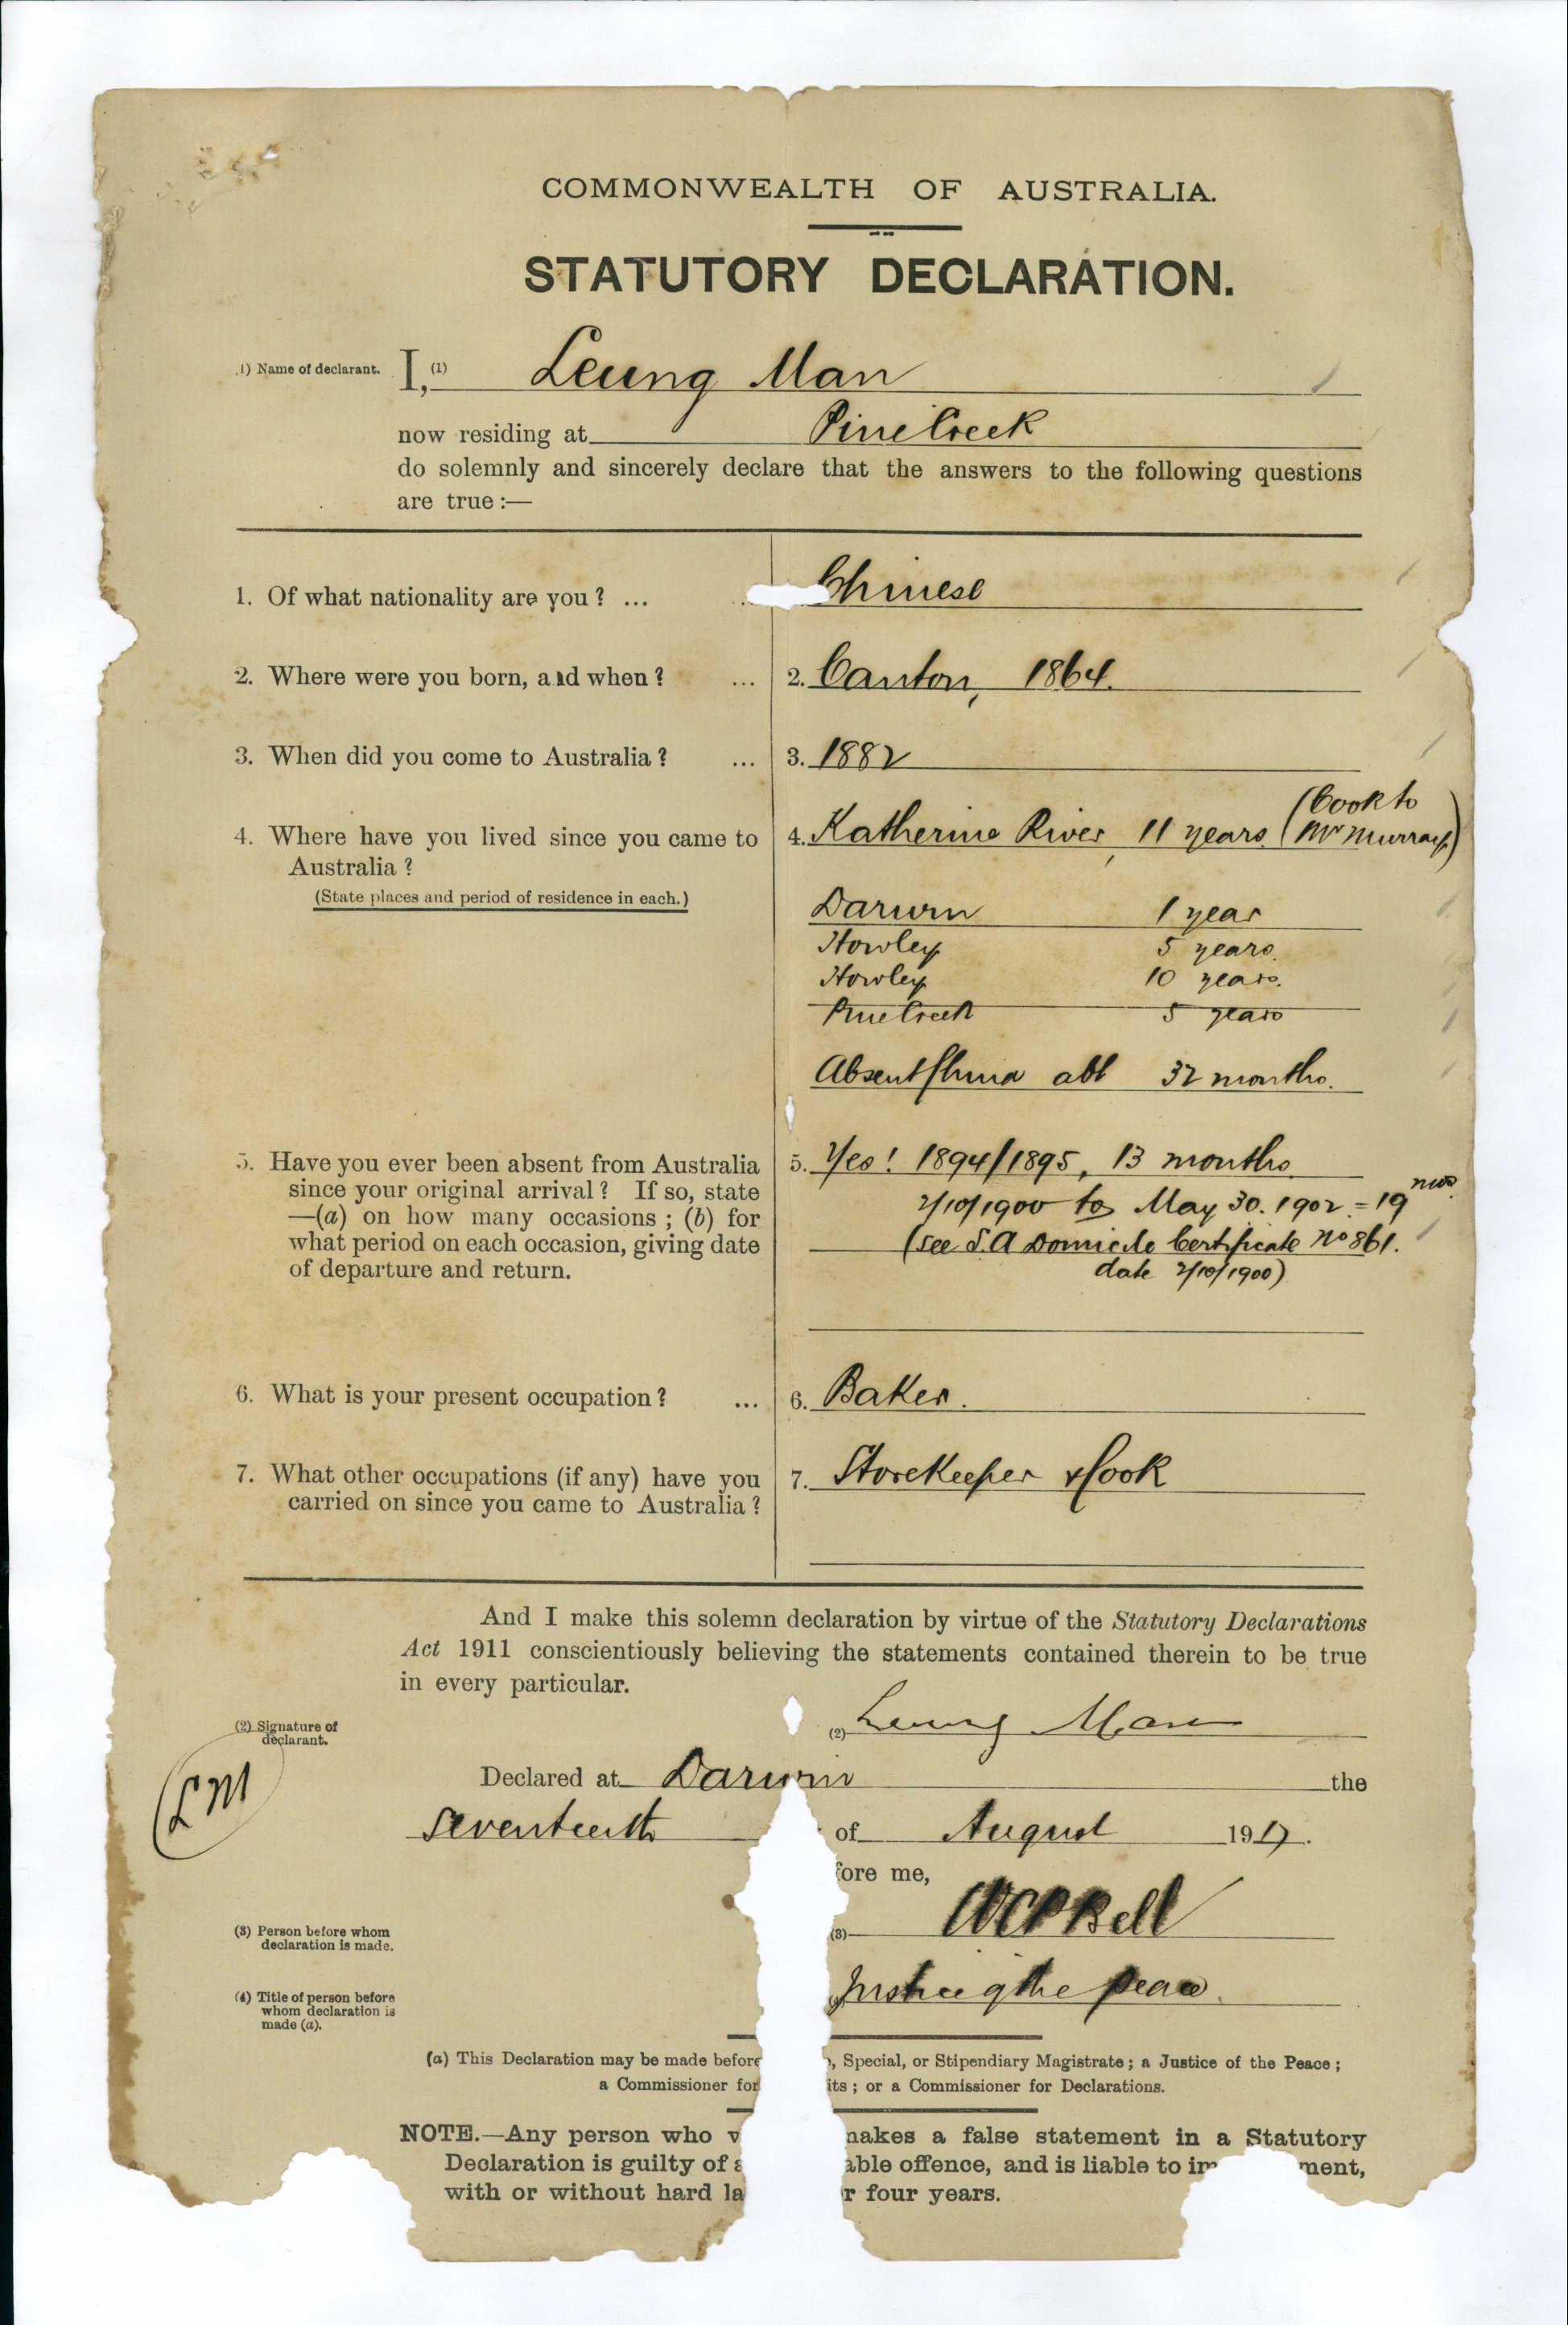 COMMONWEALTH OF AUSTRALIA.
STATUTORY DECLARATION.
1) Name of declarant. I, (1) Leung Man
now residing at Pine Creek
do solemnly and sincerely declare that the answers to the following questions
are true :—
1. Of what nationality are you ? ... Chinese
2. Where were you born, and when ? ... 2. Canton, 1864.
3. When did you come to Australia ? ... 3. 1882
(Cook to
4. Where have you lived since you came to 4. Katherine River, 11 years Mr Murray)
Australia ?
(State places and period of residence in each.)
Darwin 1 year
Howley 5 years.
Howley 10 years.
Pine Creek 5 years
Absent China abt 32 months.
5. Have you ever been absent from Australia 5. Yes! 1894/1895, 13 months
since your original arrival ? If so, state 2/10/1900 to May 30. 1902. = 19 mos.
—(a) on how many occasions ; (b) for
what period on each occasion, giving date (see S.A Domicile Certificate No 861.
of departure and return. date 2/10/1900)
6. What is your present occupation ? ... 6. Baker.
7. What other occupations (if any) have you 7. Storekeeper & Cook
carried on since you came to Australia ?
And I make this solemn declaration by virtue of the Statutory Declarations
Act 1911 conscientiously believing the statements contained therein to be true
in every particular.
(2) Signature of
declarant.
(2) Leung Man
LM
Declared at Darwin the
seventeenth of August 1917.
fore me,
(3) Person before whom
declaration is made.
(3) WCPBell
(4) Title of person before
whom declaration is
made (a).
Justice of the peace.
(a) This Declaration may be made before , Special, or Stipendiary Magistrate ; a Justice of the Peace ;
a Commissioner for its ; or a Commissioner for Declarations.
NOTE.—Any person who makes a false statement in a Statutory
Declaration is guilty of able offence, and is liable to im ment,
with or without hard la r four years.